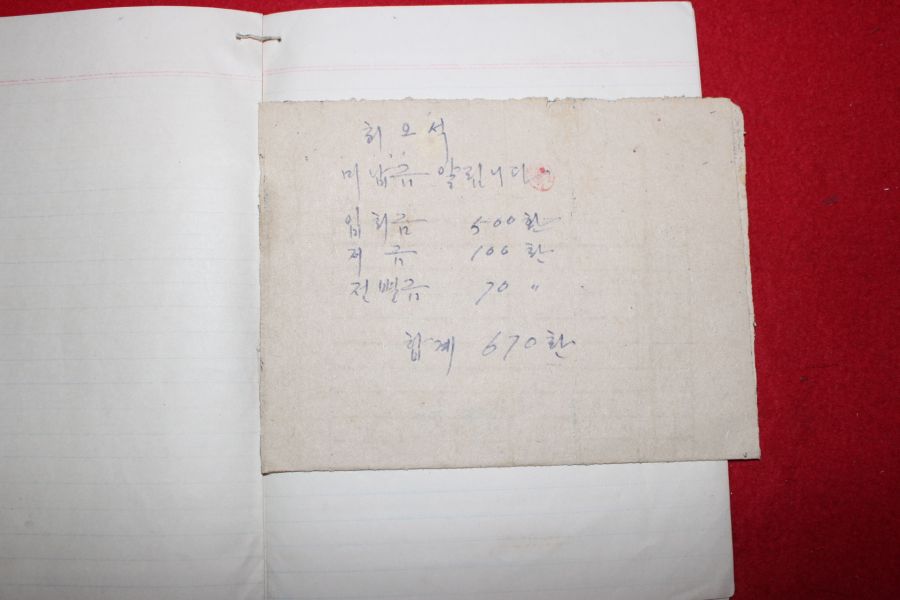 허 오 석
미납금 알립니다.
입회금 500환
저 금 100환
전별금 70 〃
합계 670환